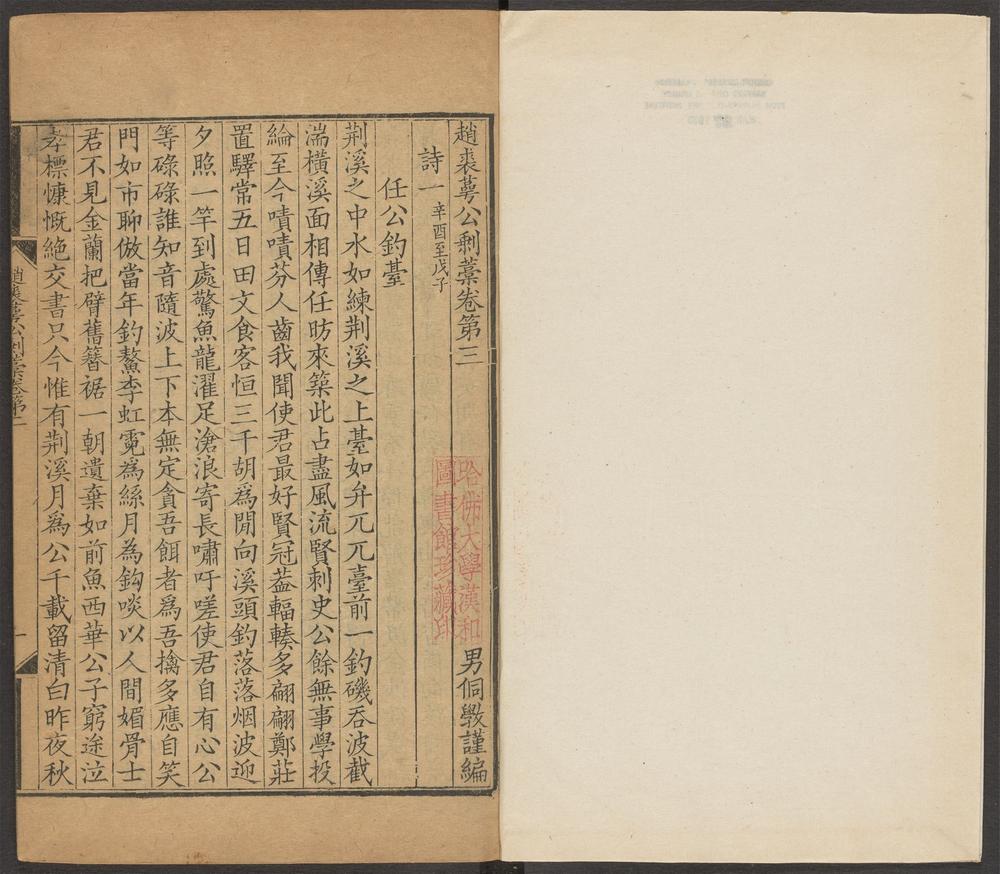 趙裘萼公剩藁卷第三
男侗斅謹編
詩一 辛酉至戊子
任公釣臺
荆溪之中水如練荆溪之上臺如弁兀兀臺前一釣磯吞波截
湍橫溪面相傳任昉來築此占盡風流賢刺史公餘無事學投
綸至今嘖嘖芬人齒我聞使君最好賢冠葢輻輳多翩翩鄭莊
置驛常五日田文食客恒三千胡爲閒向溪頭釣落落烟波迎
夕照一竿到處驚魚龍濯足滄浪寄長嘯吁嗟使君自有心公
等碌碌誰知音隨波上下本無定貪吾餌者爲吾擒多應自笑
門如市聊倣當年釣鰲李虹霓爲絲月為鈎啖以人間媚骨士
君不見金蘭把臂舊簪裾一朝遺棄如前魚西華公子窮途泣
孝標慷慨絶交書只今惟有荆溪月爲公千載留清白昨夜秋
趙裘萼公剩藁卷第三
一
哈佛大學漢和
圖書館珍藏印